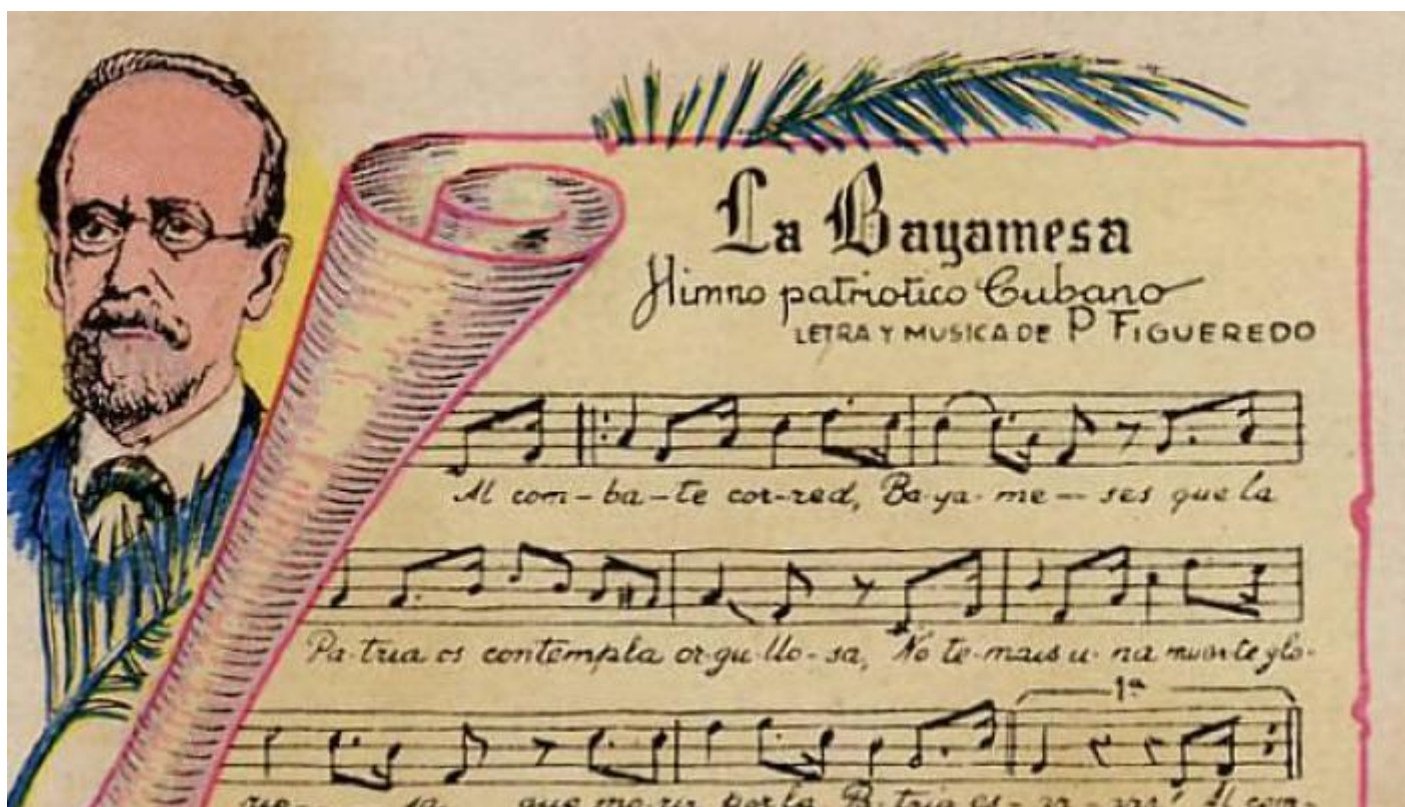 La Bayamesa
Himno patriotico Cubano
LETRA Y MUSICA DE P FIGUEREDO
Al com-ba-te cor-red, Ba-ya-me-ses que la
Pa-tria os contempla or-gu-llo-sa, No te-mais u-na muer-te glo-
1ª
rio- sa que mo-rir por la P-tria es-